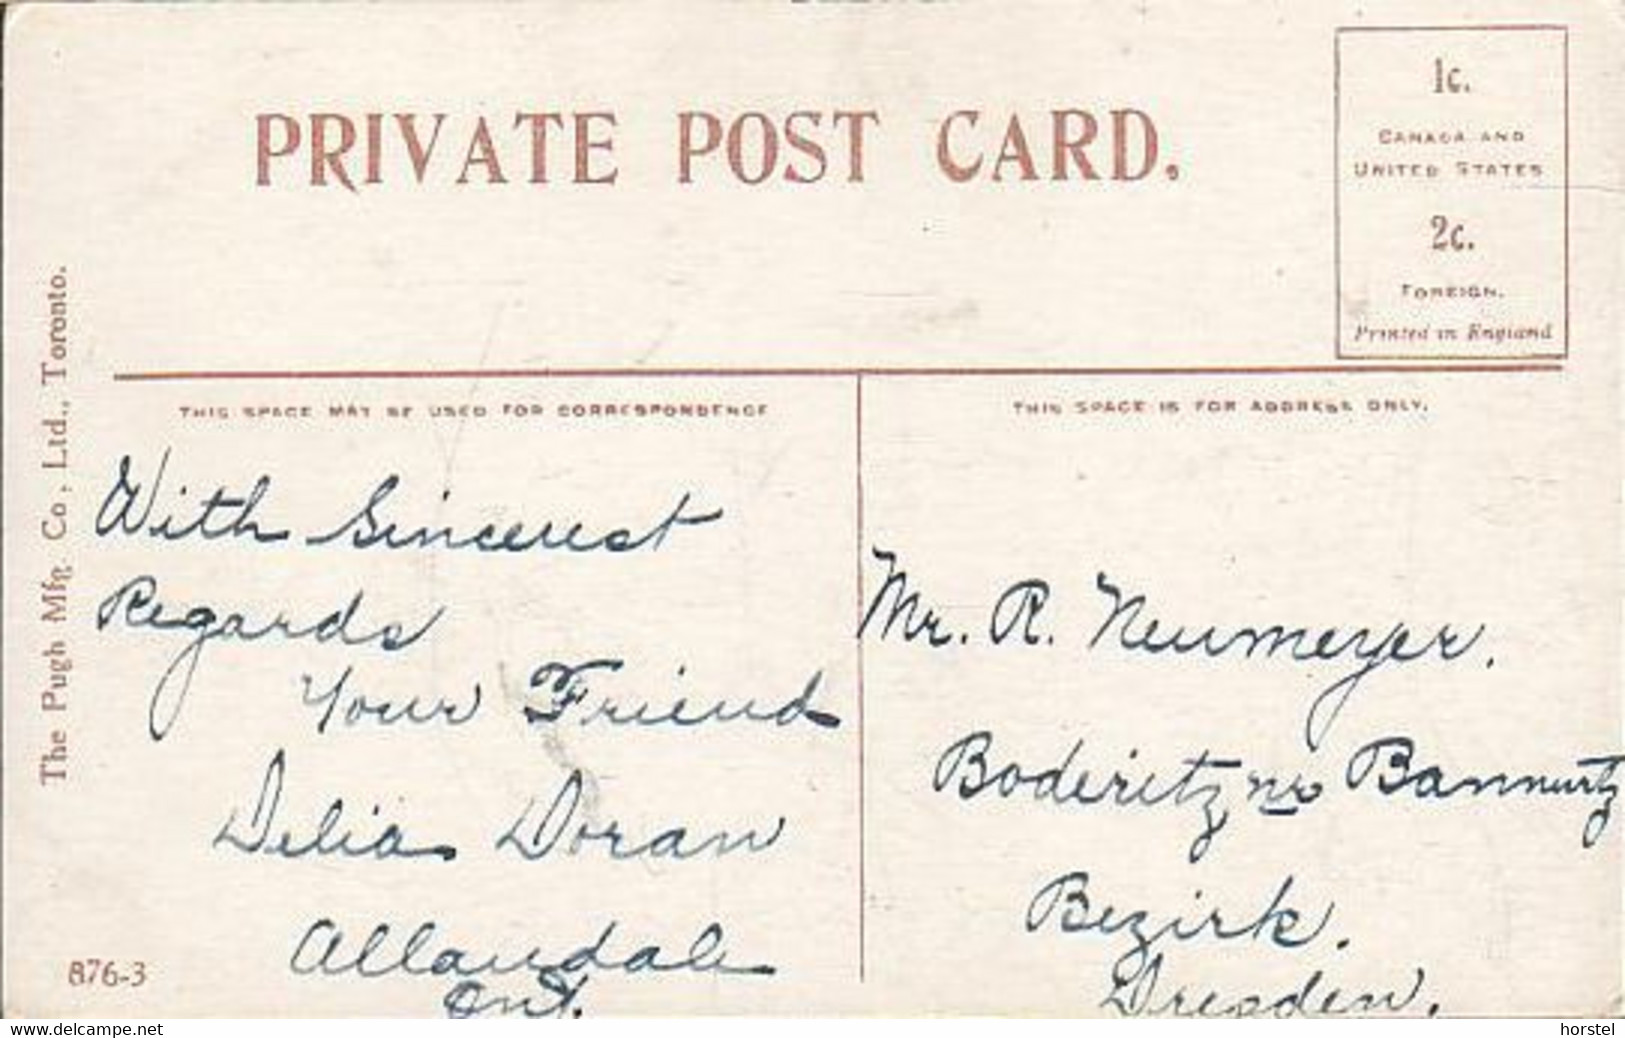 PRIVATE POST CARD.
1c.
CANADA AND
UNITED STATES
2c.
FOREIGN.
Printed in England
The Pugh Mfg. Co., Ltd., Toronto.
THIS SPACE MAY BE USED FOR CORRESPONDENCE
With Sincerest
Regards
Your Friend
Delia Doran
Allandale
Ont.
876-3
THIS SPACE IS FOR ADDRESS ONLY.
Mr. R. Neumeyer.
Boderitz nr Bannurtz
Bezirk.
Dresden.
www.delcampe.net
horstel